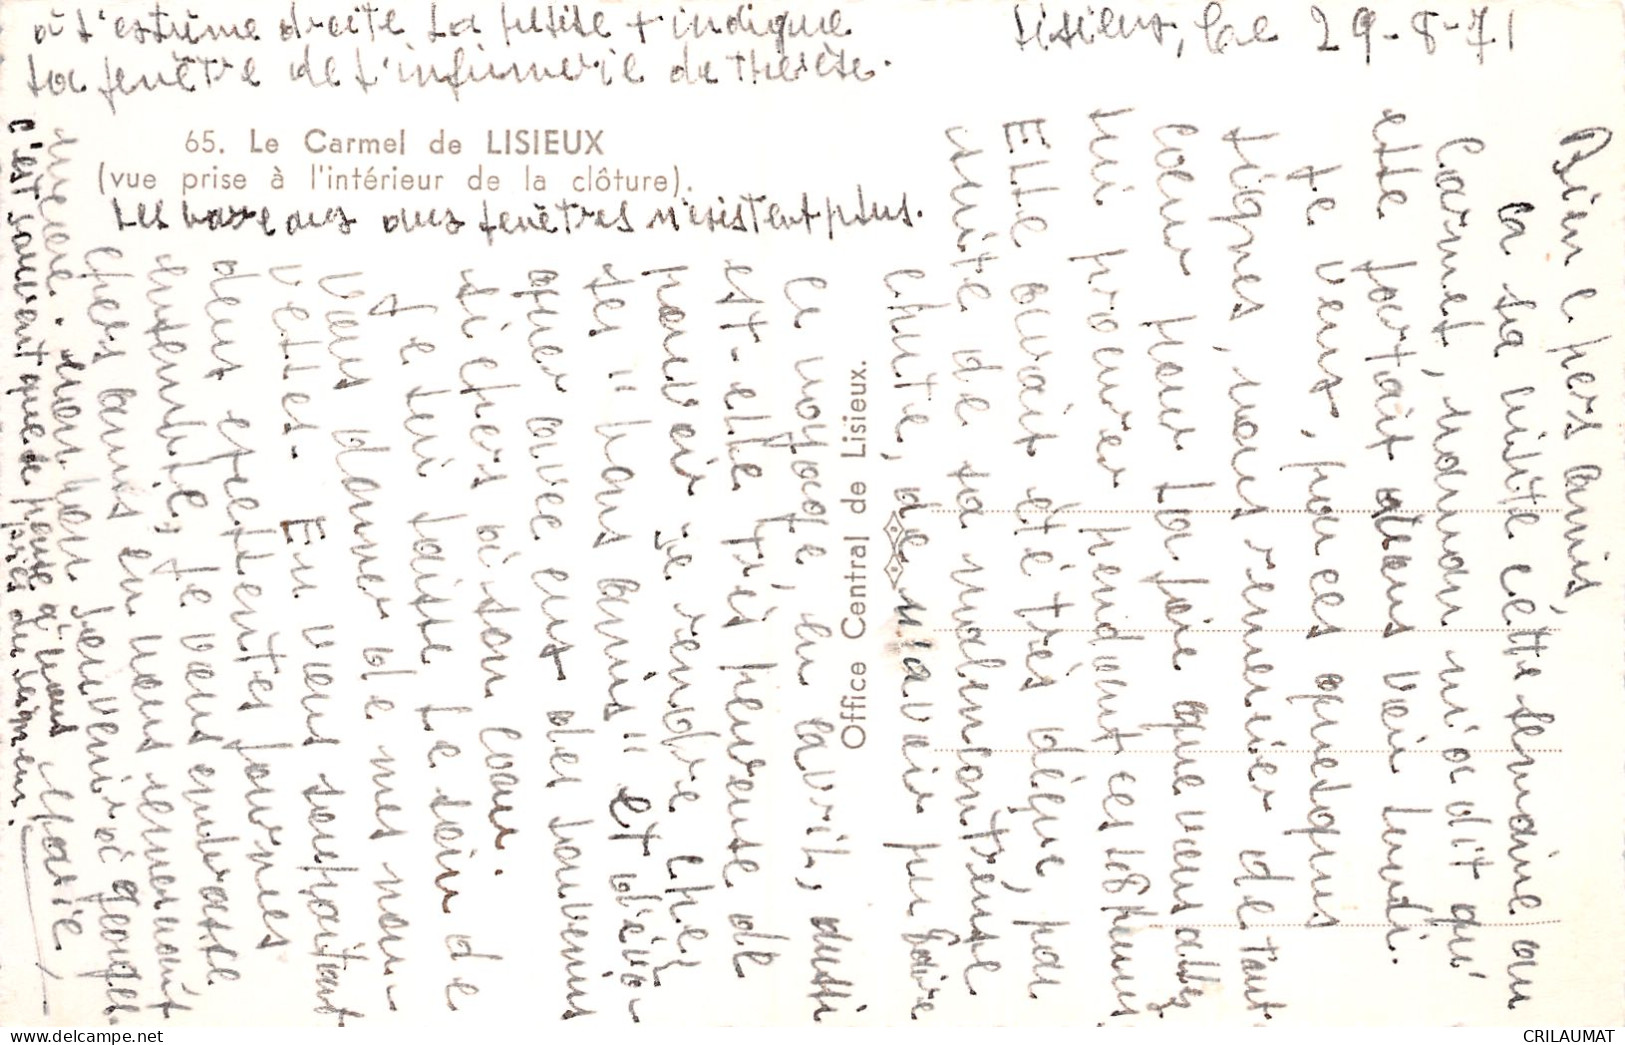 à l'extrême droite la petite + indique
la fenêtre de l'infirmerie de Thérèse.
Lisieux, le 29-8-71
65. Le Carmel de LISIEUX
(vue prise à l'intérieur de la clôture).
Les barreaux aux fenêtres n'existent plus.
Office Central de Lisieux.
Bien chers amis,
En sa visite cette semaine au
Carmel, maman m'a dit qu'
elle partait chez vous lundi.
Je veux, par ces quelques
lignes, vous remercier de tout
coeur pour la joie que vous allez
lui procurer pendant ces 10 jours
Elle aurait été très déçue, par
suite de sa malencontreuse
chute, de n'avoir pu faire
ce voyage, en avril, aussi
est-elle très heureuse de
pouvoir se rendre chez
ses "bons amis" et d'évo-
quer avec eux des souvenirs
si chers à son coeur.
Je lui laisse le soin de
vous donner de mes nou-
velles. En vous souhaitant
deux excellentes journées
ensemble, je vous embrasse
chers amis en vous remerciant
encore. mon bon souvenir à Georges.
Marie
c'est souvent que je pense à vous
près du Seigneur.
CRILAUMAT